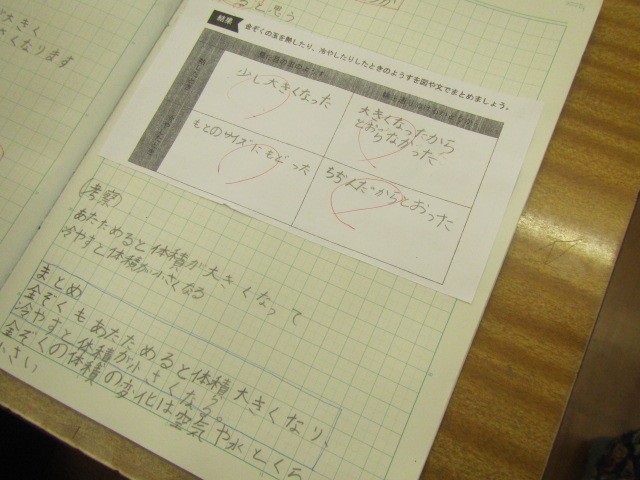 大きく
さくなります
ると思う
結果
金ぞくの玉を熱したり、冷やしたりしたときのようすを図や文でまとめましょう。
少し大きくなった
大きくなったから
とおらなかった
もとのサイズにもどった
ちぢんだからとおった
(考察)
あたためると体積が大きくなって
冷やすと体積が小さくなる
まとめ
金ぞくもあたためると体積大きくなり、
冷やすと体積が小さくなる。
金ぞくの体積の変化は空気や水とくら
小さい